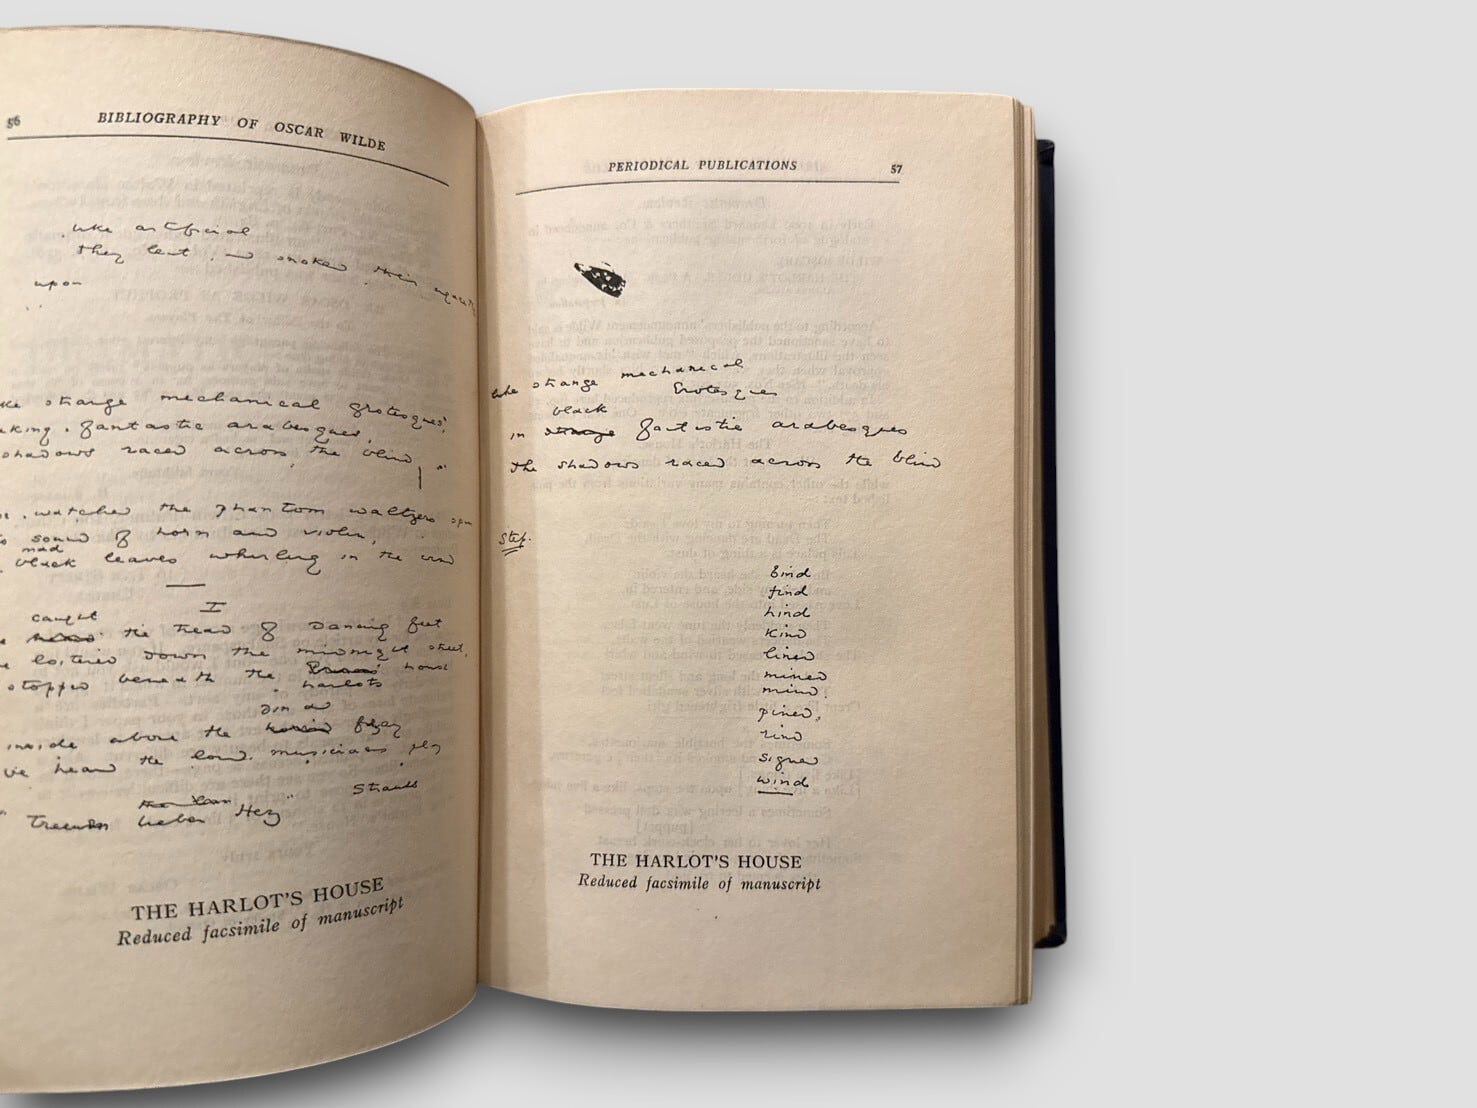 56 BIBLIOGRAPHY OF OSCAR WILDE
like artificial
they leant, and smoked their
upon
strange mechanical grotesques,
fantastic arabesques,
shadows raced across the blind
watched the phantom waltzers spin
sound of horn and violin,
mad
black leaves whirling in the wind
I
caught
the tread of dancing feet
loitered down the moonlight street,
stopped beneath the house
harlots
din and
inside above the fray
heard the loud musicians play
Strauss
Treues Liebes Herz
THE HARLOT'S HOUSE
Reduced facsimile of manuscript
PERIODICAL PUBLICATIONS 57
like strange mechanical
Grotesques
black
in strange fantastic arabesques
the shadows raced across the blind
Step.
bind
find
hind
kind
lined
mined
mind.
pined,
rind
signed
wind
THE HARLOT'S HOUSE
Reduced facsimile of manuscript